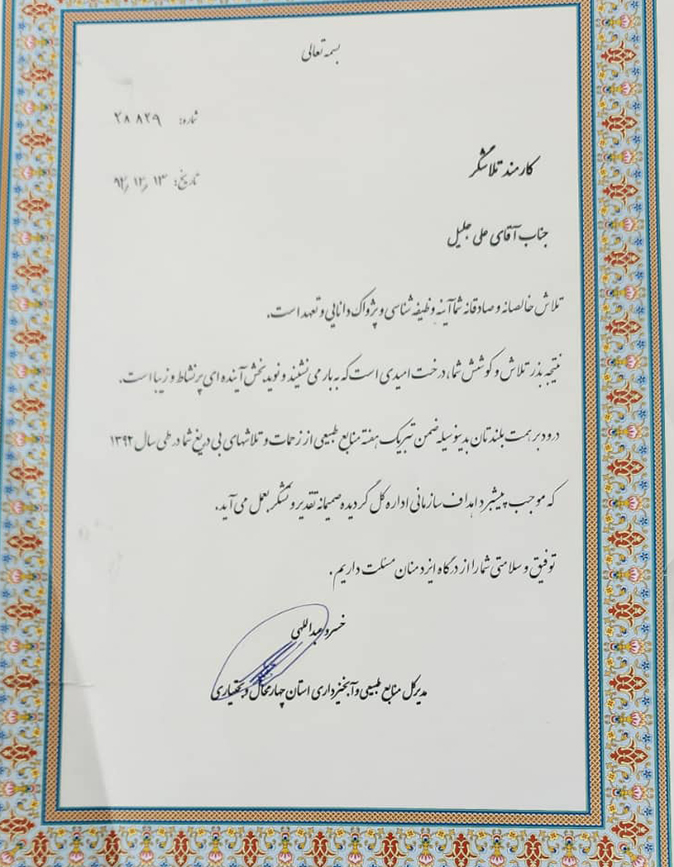 بسمه تعالی
شماره: ۲۸۸۲۹
تاریخ: ۹۲/۱۲/۱۳
کارمند تلاشگر
جناب آقای علی جلیل
تلاش خالصانه و صادقانه شما آینه وظیفه شناسی و پژواک دانایی و تعهد است.
نتیجه بذر تلاش و کوشش شما، درخت امیدی است که به بار می نشیند و نوید بخش آینده ای پر نشاط و زیبا است.
درود بر همت بلندتان بدینوسیله ضمن تبریک هفته منابع طبیعی از زحمات و تلاشهای بی دریغ شما در طی سال ۱۳۹۲
که موجب پیشبرد اهداف سازمانی اداره کل گردیده صمیمانه تقدیر و تشکر بعمل می آید.
توفیق و سلامتی شما را از درگاه ایزد منان مسئلت داریم.
خسرو عبداللهی
مدیرکل منابع طبیعی و آبخیزداری استان چهارمحال و بختیاری